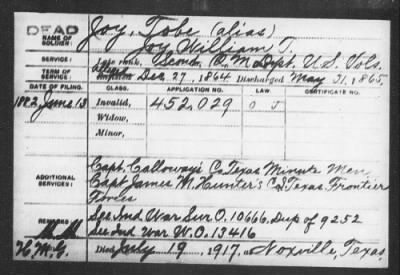 DEAD
NAME OF SOLDIER:
Joy, Tobe (alias)
Joy William T.
SERVICE:
Late rank, Scout, Q. M. Dept. U.S. Vols.
TERM OF SERVICE:
Enlisted Dec. 27, 1864 Discharged May 31, 1865.
DATE OF FILING. CLASS. APPLICATION NO. LAW.
1882 June 13 Invalid, 452,029 O J
Widow,
Minor,
ADDITIONAL SERVICES:
Capt. Calloway's Co Texas Minute Men,
Capt James M. Hunter's Co Texas Frontier
Forces
REMARKS:
See Ind War Sur O. 10666, Dup of 9252
See Ind War W.O. 13416
Died July 19, 1917, at Noxville, Texas